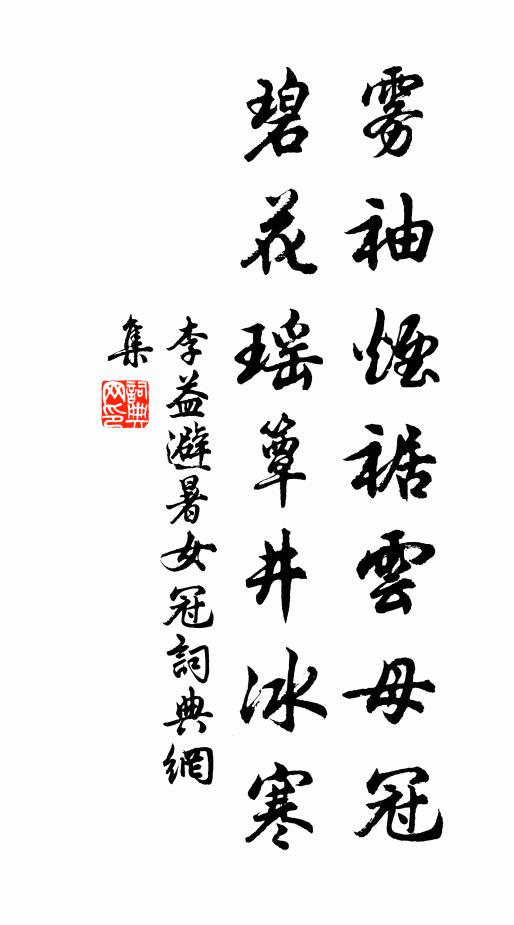 雾袖煙裾雲母冠
碧花瑶簟井冰寒
李益避暑女冠詞典網
集
詞典网印